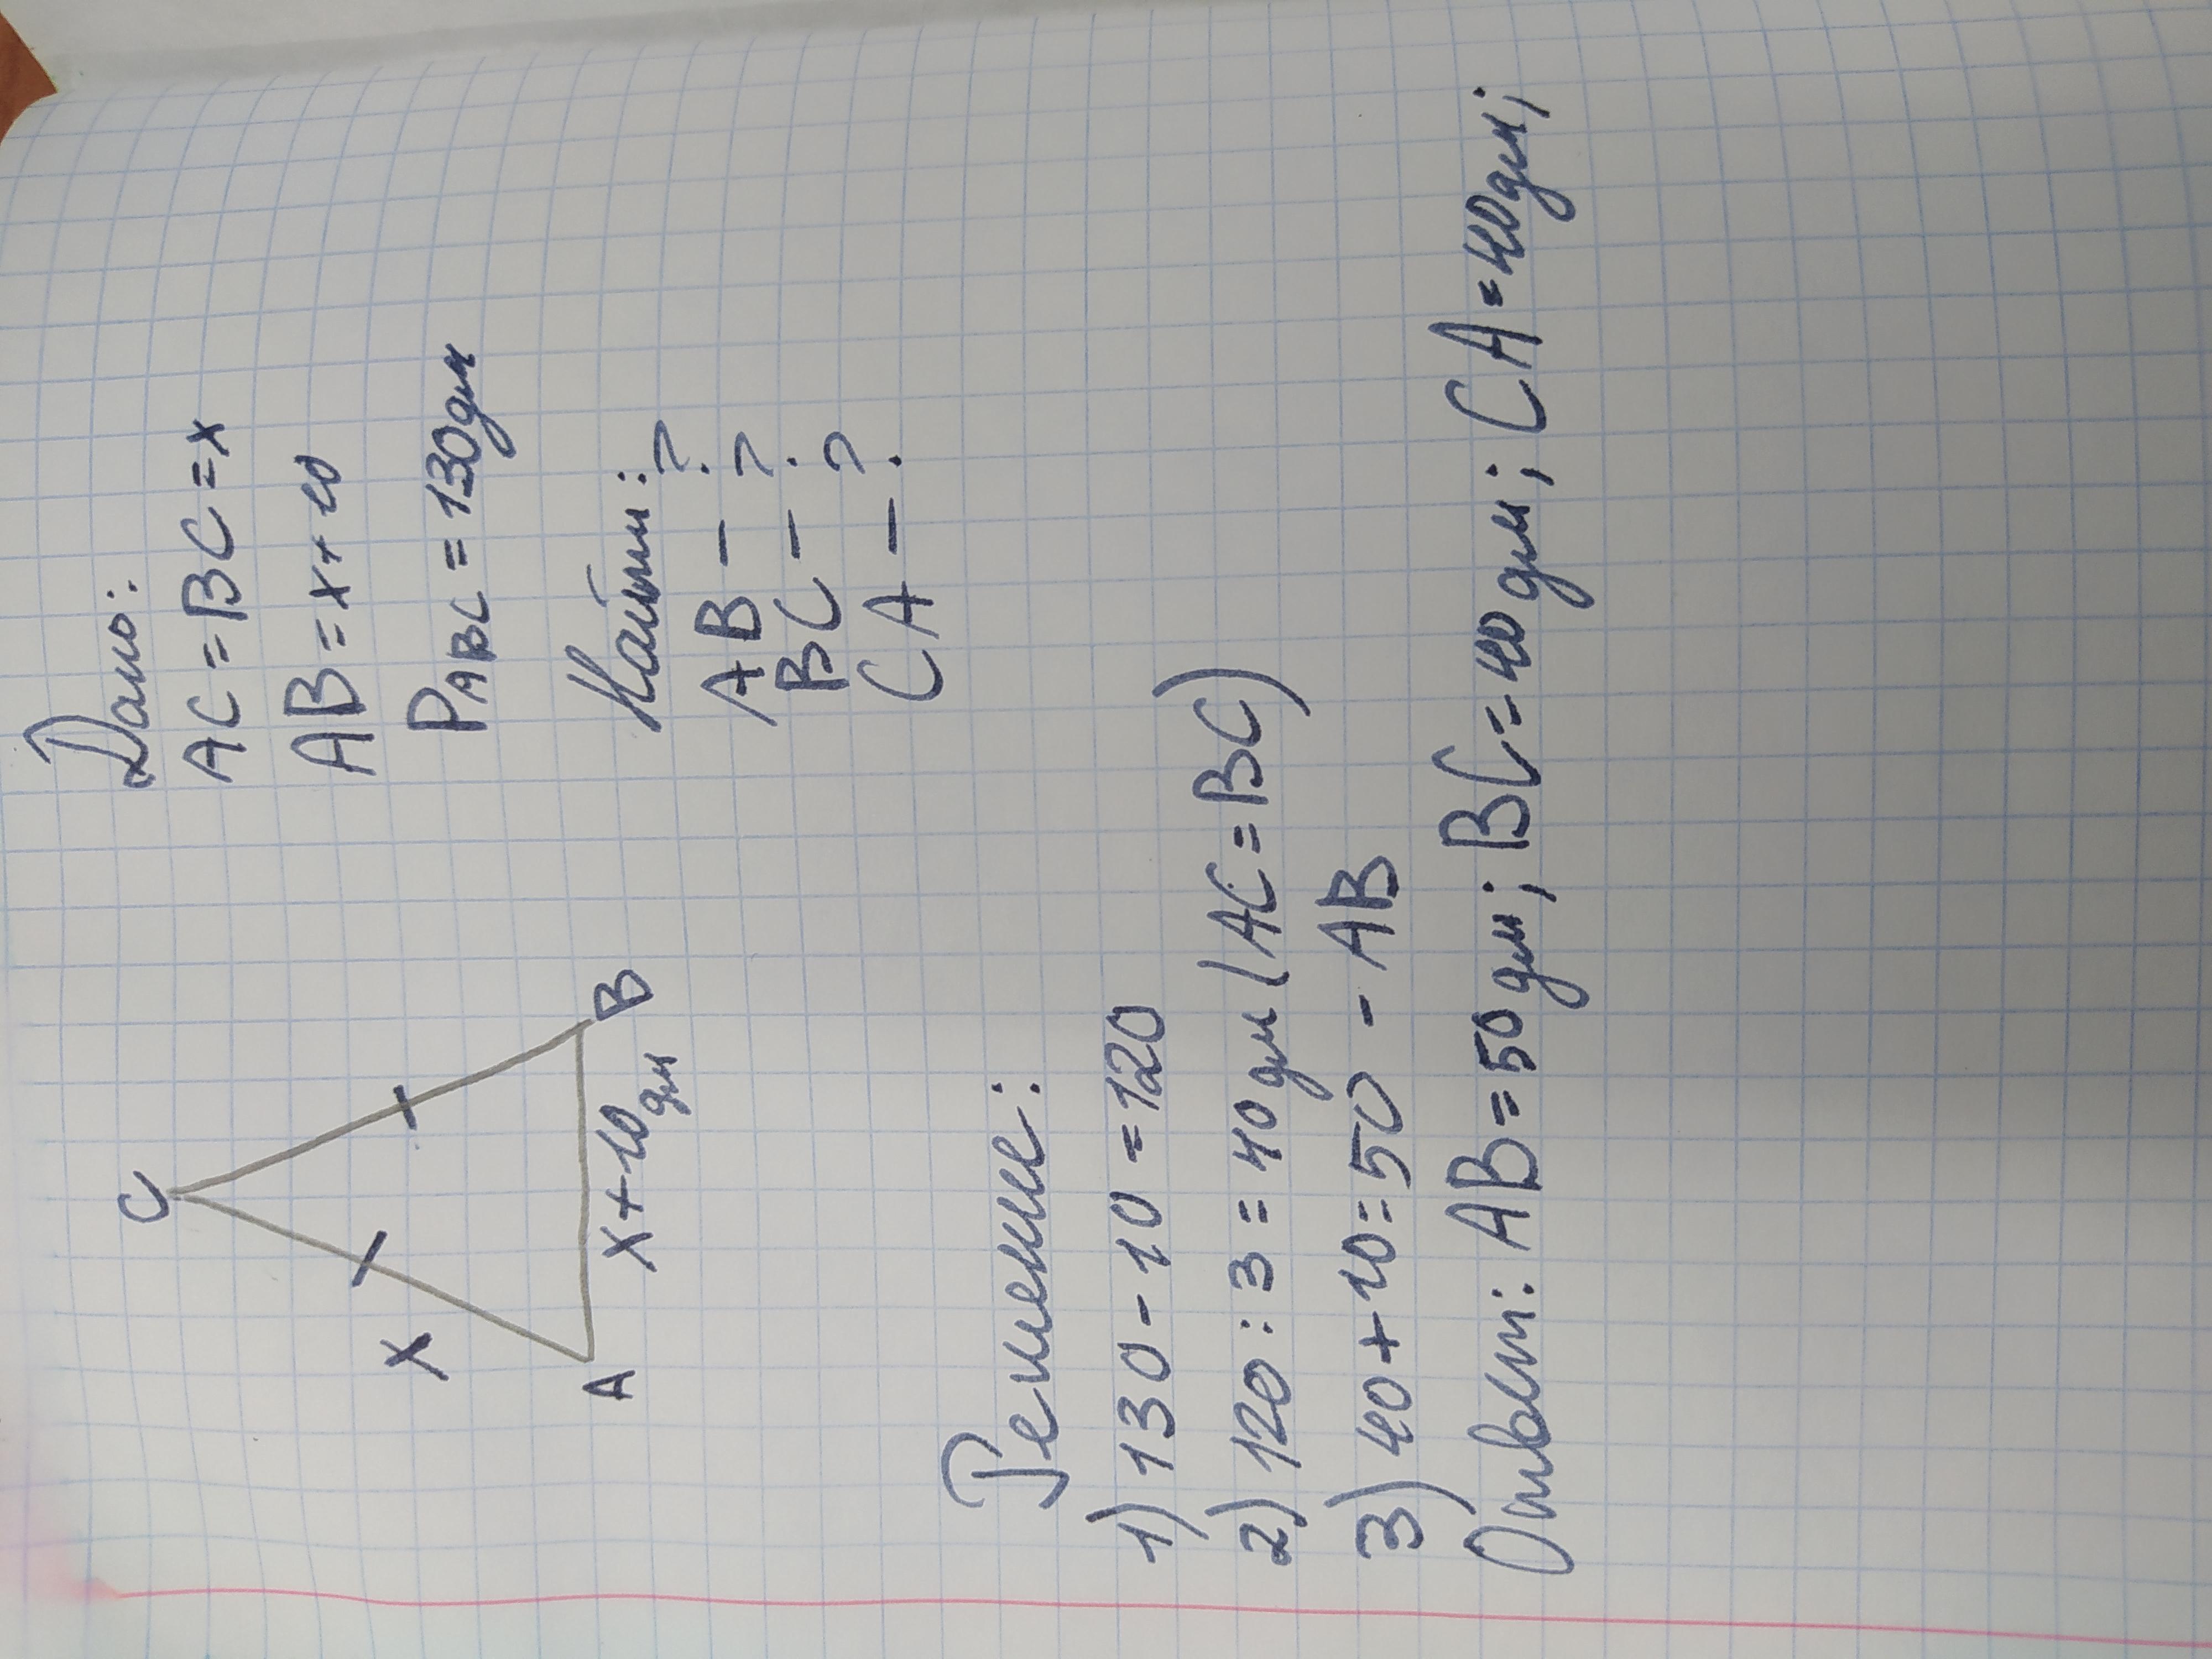 C
X
A
B
X+10дм
Дано:
AC=BC=x
AB=x+10
PABC=130дм
Найти:
AB-?
BC-?
CA-?
Решение:
1) 130-10=120
2) 120:3=40дм (AC=BC)
3) 40+10=50-AB
Ответ: AB=50дм; BC=40дм; CA=40дм;